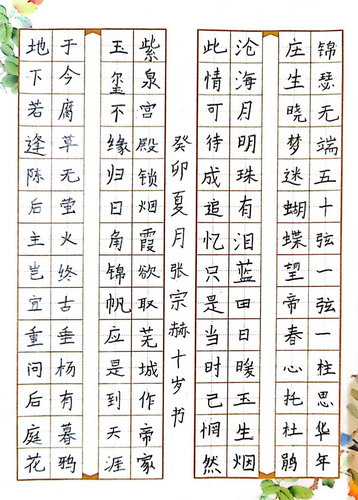 锦瑟无端五十弦一弦一柱思华年
庄生晓梦迷蝴蝶望帝春心托杜鹃
沧海月明珠有泪蓝田日暖玉生烟
此情可待成追忆只是当时己惘然
癸卯夏月张宗赫十岁书
紫泉宫殿锁烟霞欲取芜城作帝家
玉玺不缘归日角锦帆应是到天涯
于今腐草无萤火终古垂杨有暮鸦
地下若逢陈后主岂宜重问后庭花